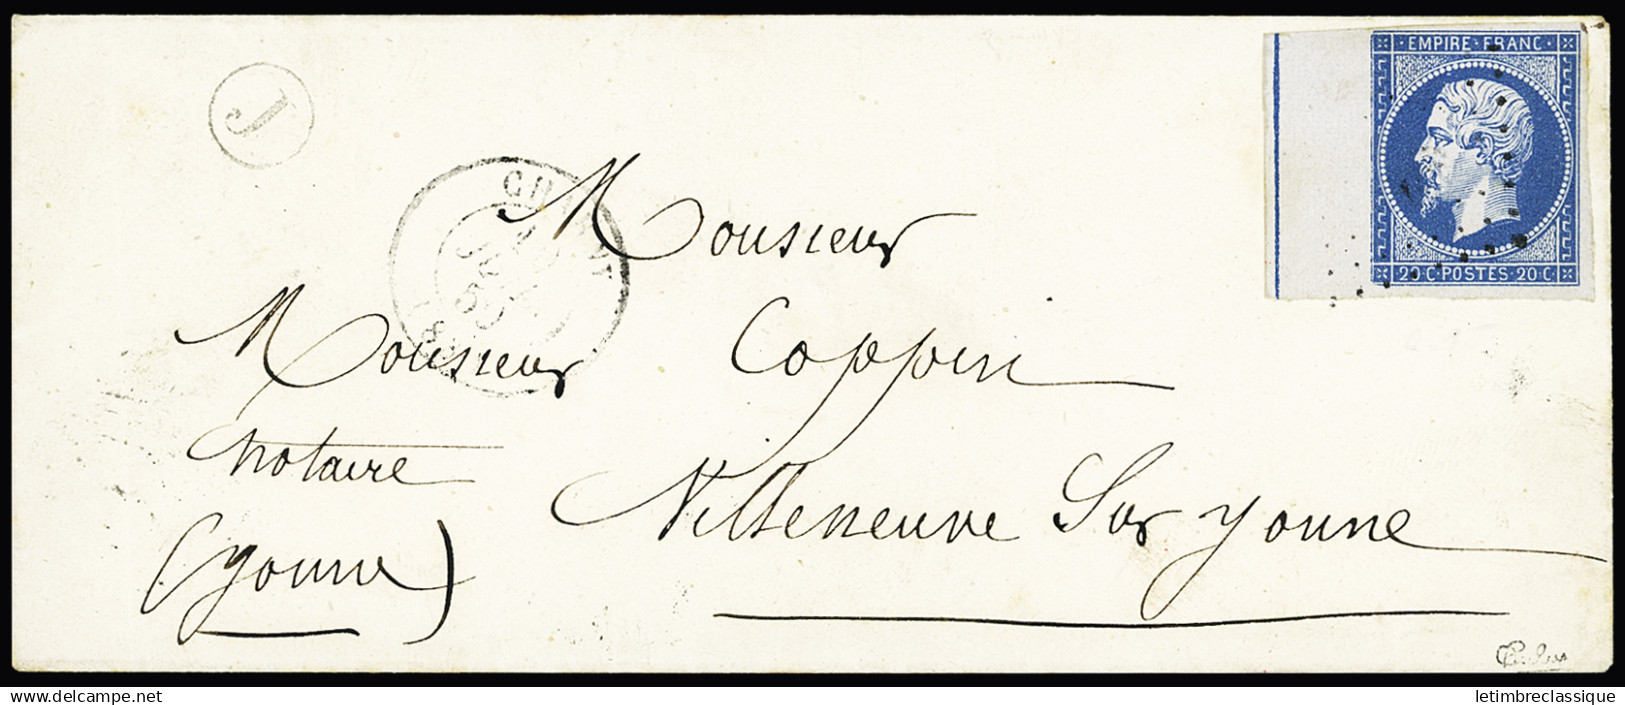 J
EMPIRE · FRANC ·
20 C · POSTES · 20 C ·
Monsieur
Monsieur Coppin
notaire
Villeneuve Sur yonne
(yonne)
delcampe.net
letimbreclassique